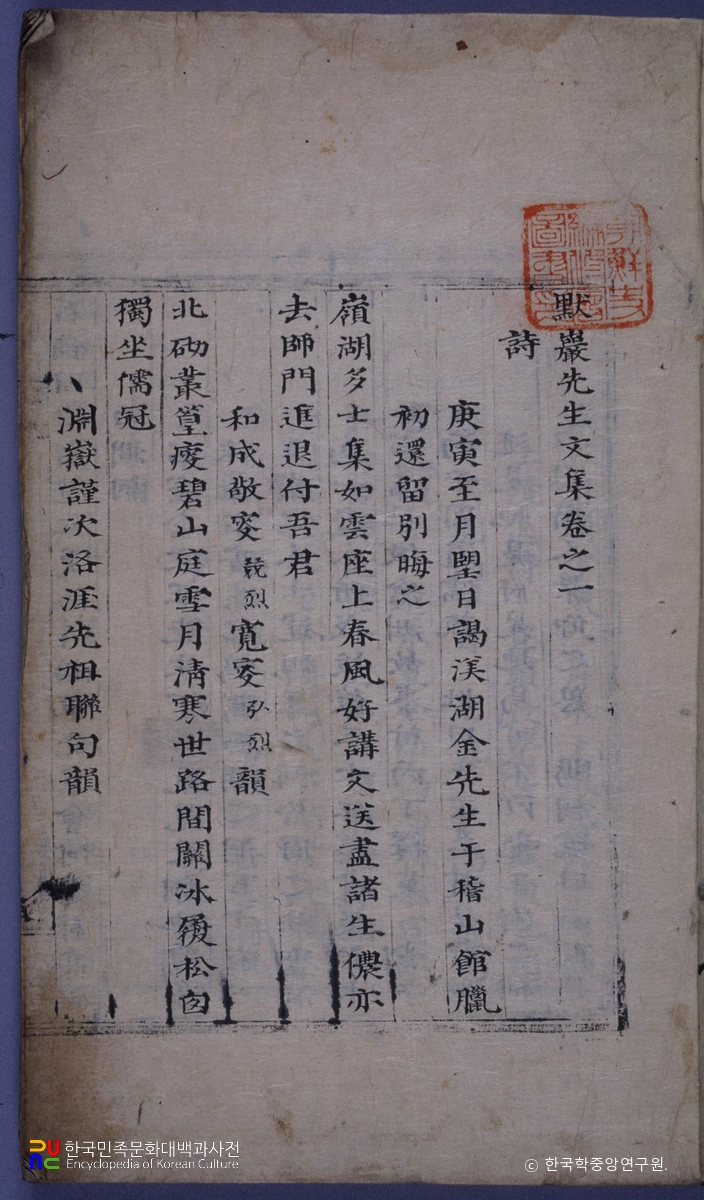 默巖先生文集卷之一
詩
庚寅至月朢日謁渼湖金先生于稽山館臘
初還留別晦之
嶺湖多士集如雲座上春風好講文送盡諸生儂亦
去師門進退付吾君
和成敬叜兢烈寬叜弘烈韻
北砌叢篁瘦碧山庭雪月清寒世路間關冰
松
獨坐儒冠
淵嶽謹次洛涯先祖聯句韻
한국민족문화대백과사전
Encyclopedia of Korean Culture
© 한국학중앙연구원.